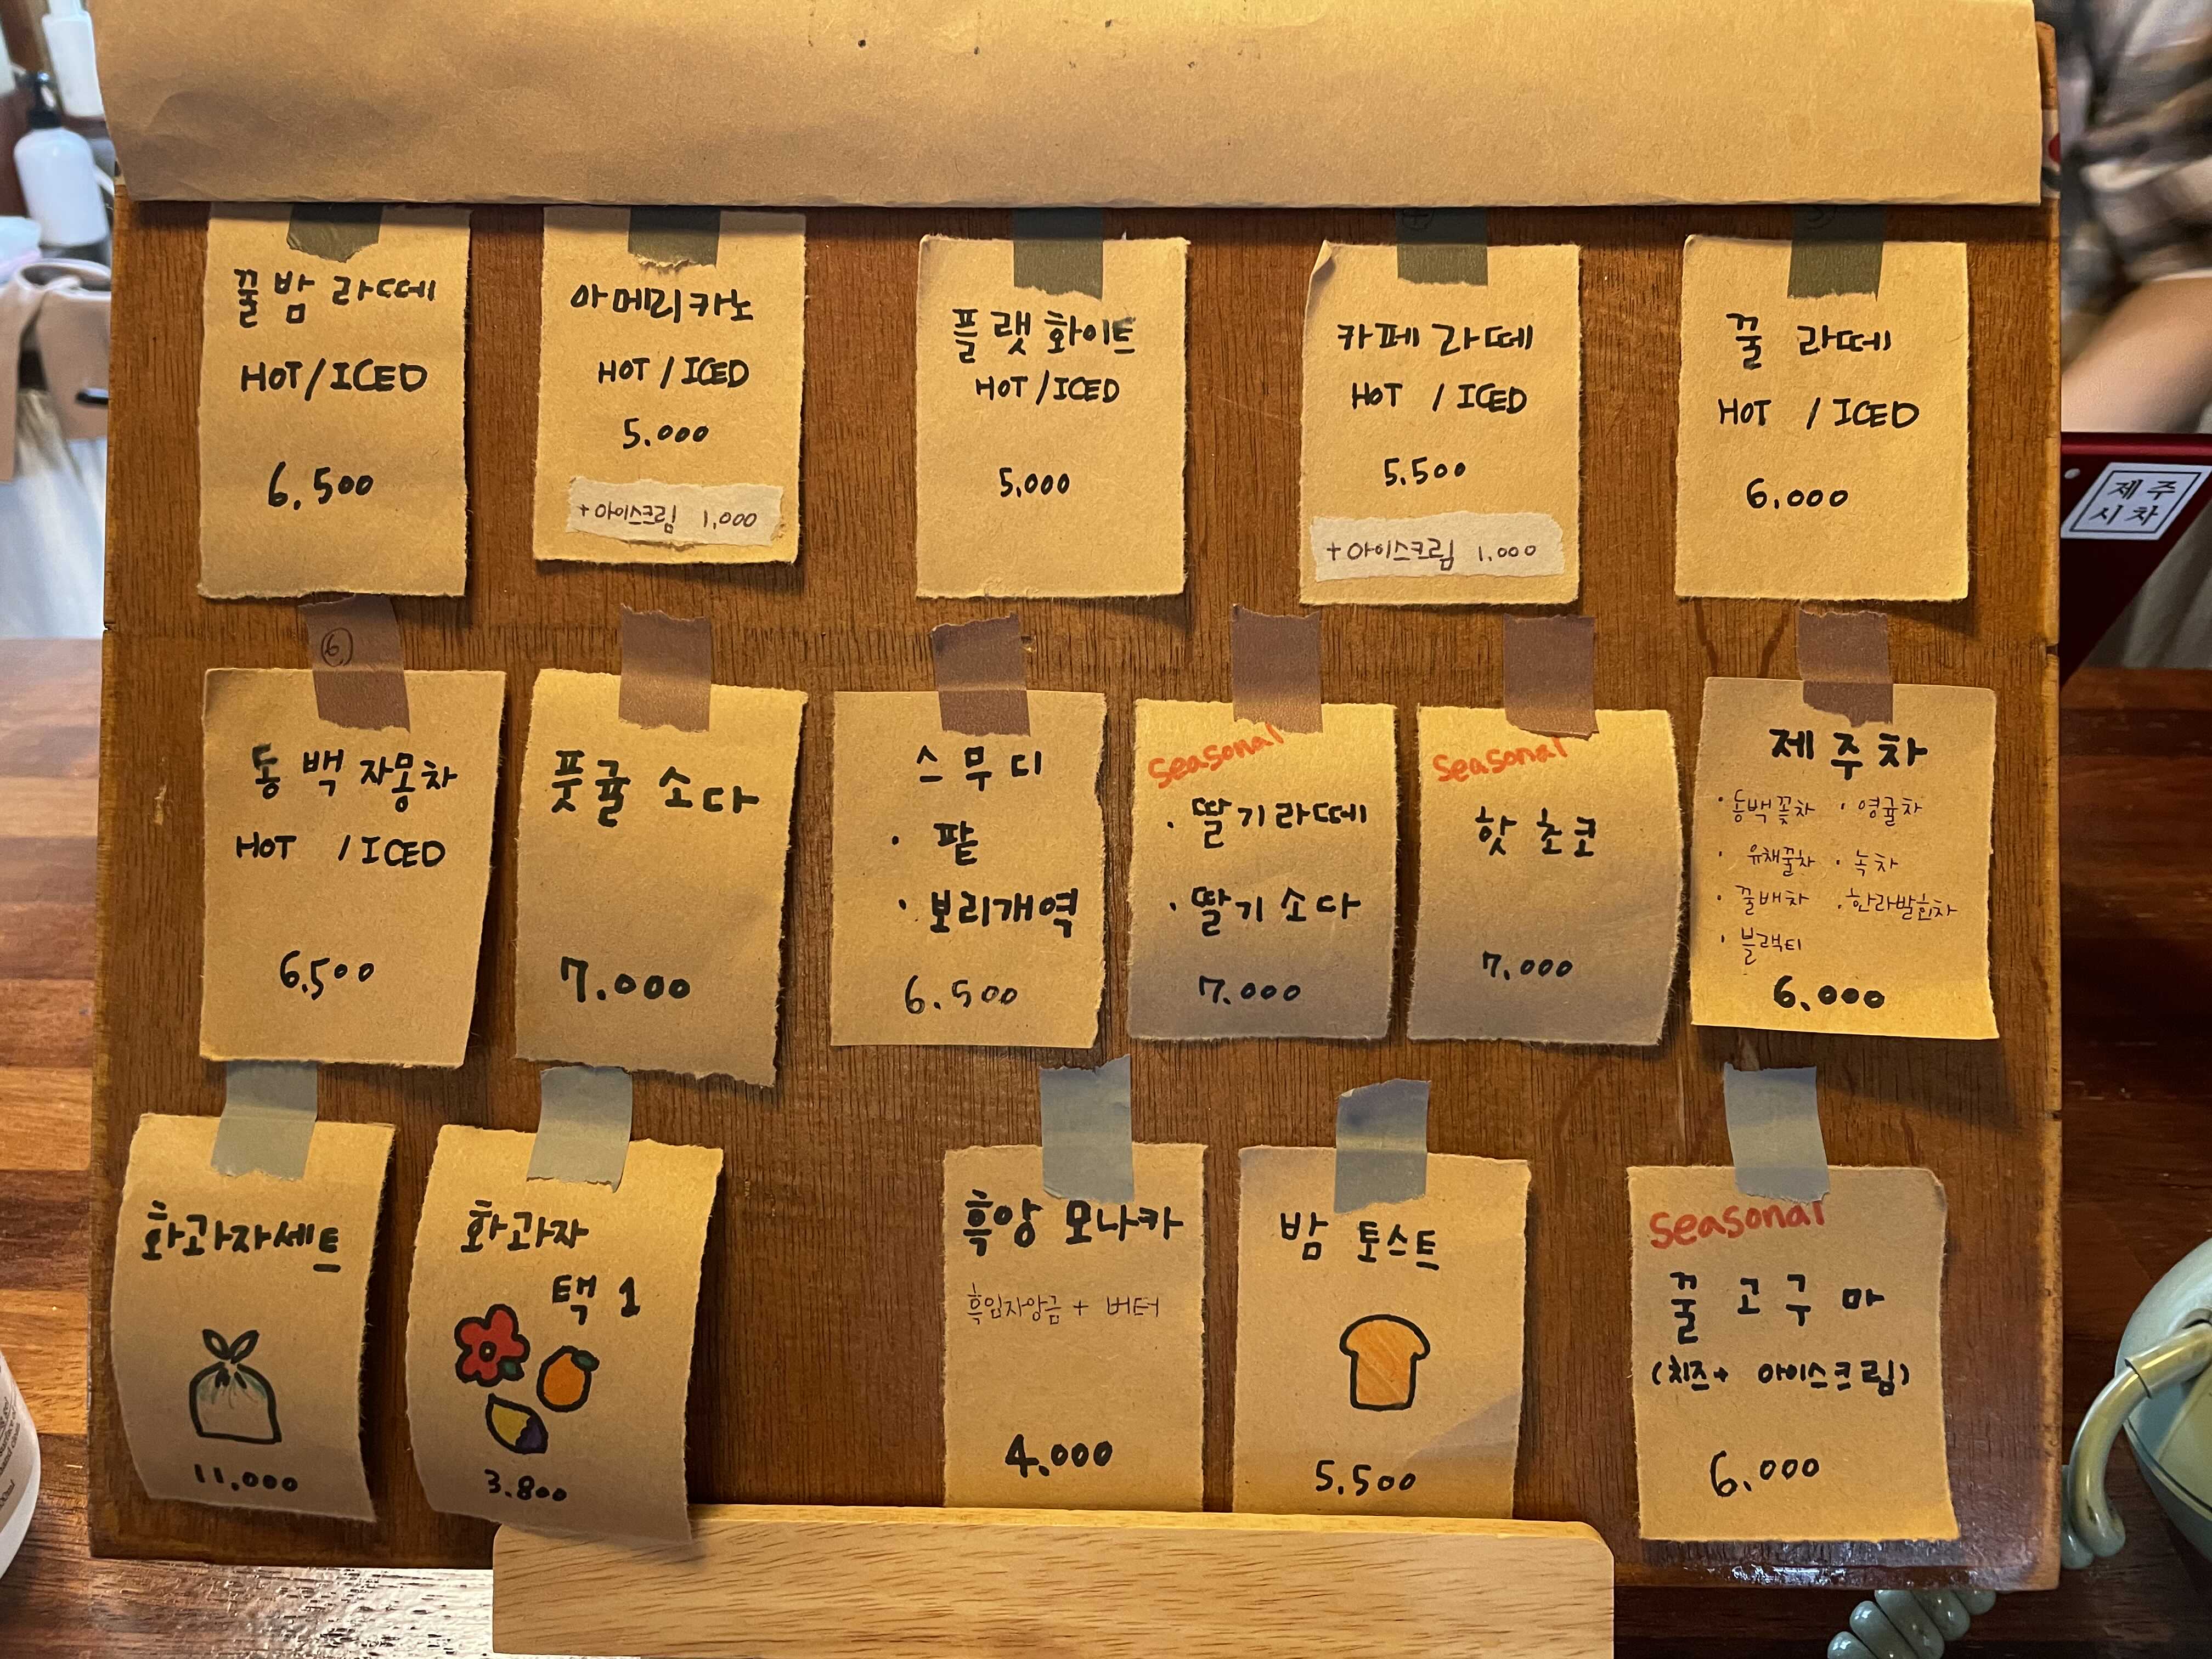 꿀밤 라떼
HOT/ICED
6.500
아메리카노
HOT / ICED
5.000
+아이스크림 1,000
플랫화이트
HOT/ICED
5,000
카페 라떼
HOT / ICED
5.500
+아이스크림 1.000
꿀 라떼
HOT / ICED
6.000
제주
시차
6
동백자몽차
HOT / ICED
6,500
풋귤 소다
7.000
스무디
· 팥
· 보리개역
6.500
Seasonal
· 딸기라떼
· 딸기소다
7.000
Seasonal
핫초코
7.000
제주차
· 동백꽃차 · 영귤차
· 유채꿀차 · 녹차
· 꿀배차 · 한라발효차
· 블랙티
6.000
화과자세트
11,000
화과자
택 1
3.800
흑앙 모나카
흑임자앙금 + 버터
4.000
밤 토스트
5.500
Seasonal
꿀고구마
(치즈+ 아이스크림)
6.000